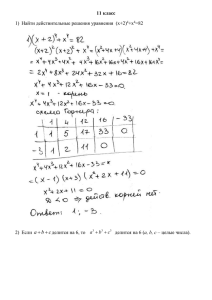 11 класс
1) Найти действительные решения уравнения (x+2)⁴+x⁴=82
1) (x+2)⁴ + x⁴ = 82
(x+2)²(x+2)² + x⁴ = (x²+4x+4)(x²+4x+4)+x⁴=
2x⁴+8x³+24x²+32x+16=82
x⁴+4x³+12x²+16x-33=0
x=1 - корень
x⁴+4x³+12x²+16x-33=0
схема Горнера:
1 4 12 16 -33
1 1 5 17 33 0
-3 1 2 11 0
x⁴+4x³+12x²+16x-33=
=(x-1)(x+3)(x²+2x+11)=0
x²+2x+11=0
D<0 => действ. корней нет.
Ответ: 1; -3.
2) Если a+b+c делится на 6, то a³+b³+c³ делится на 6 (a, b, c – целые числа).